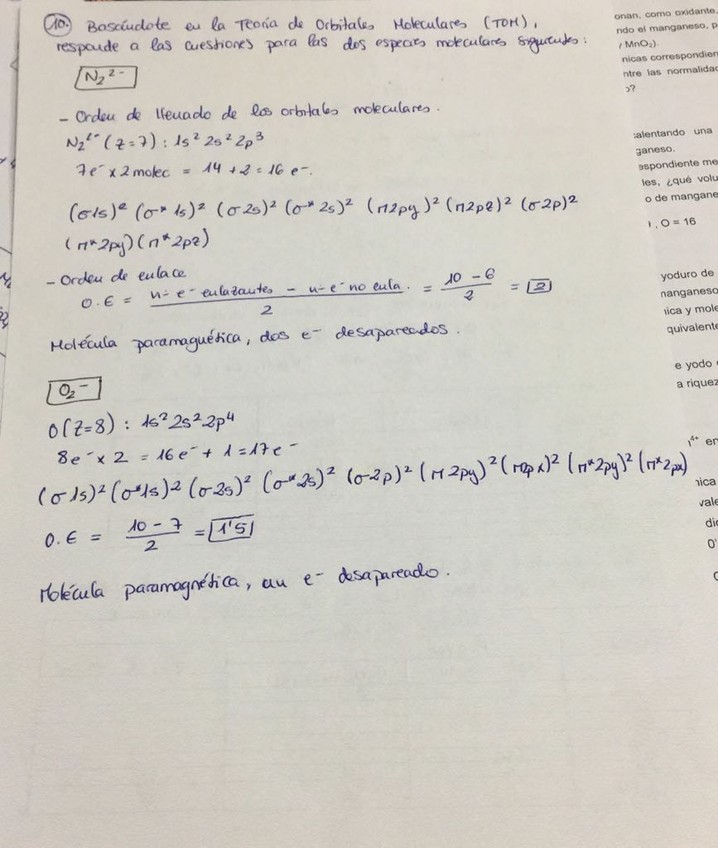 10. Basándote en la Teoría de Orbitales Moleculares (TOM),
responde a las cuestiones para las dos especies moleculares siguientes:
N₂²⁻
- Orden de llenado de los orbitales moleculares.
N₂²⁻ (z=7) : 1s² 2s² 2p³
7e⁻ x 2 molec = 14 + 2 = 16 e⁻.
(σ1s)² (σ* 1s)² (σ 2s)² (σ* 2s)² (π2py)² (π2pz)² (σ 2p)²
(π* 2py) (π* 2pz)
- Orden de enlace
O.E = (nº e⁻ enlazantes - nº e⁻ no enla.) / 2 = (10 - 6) / 2 = 2
Molécula paramagnética, dos e⁻ desapareados.
O₂⁻
O(Z=8) : 1s² 2s² 2p⁴
8e⁻ x 2 = 16e⁻ + 1 = 17e⁻
(σ 1s)² (σ*1s)² (σ 2s)² (σ* 2s)² (σ 2p)² (π 2py)² (π2px)² (π* 2py)² (π* 2px)
O.E = (10 - 7) / 2 = 1'5
Molécula paramagnética, un e⁻ desapareado.
onan, como oxidante,
ndo el manganeso, p
/ MnO₂).
nicas correspondien
ntre las normalidad
o?
alentando una
ganeso.
espondiente me
les, ¿qué volu
o de mangane
), O = 16
yoduro de
nanganeso
nica y mole
quivalente
e yodo
a riquez
⁴⁺ en
nica
vale
dic
0'